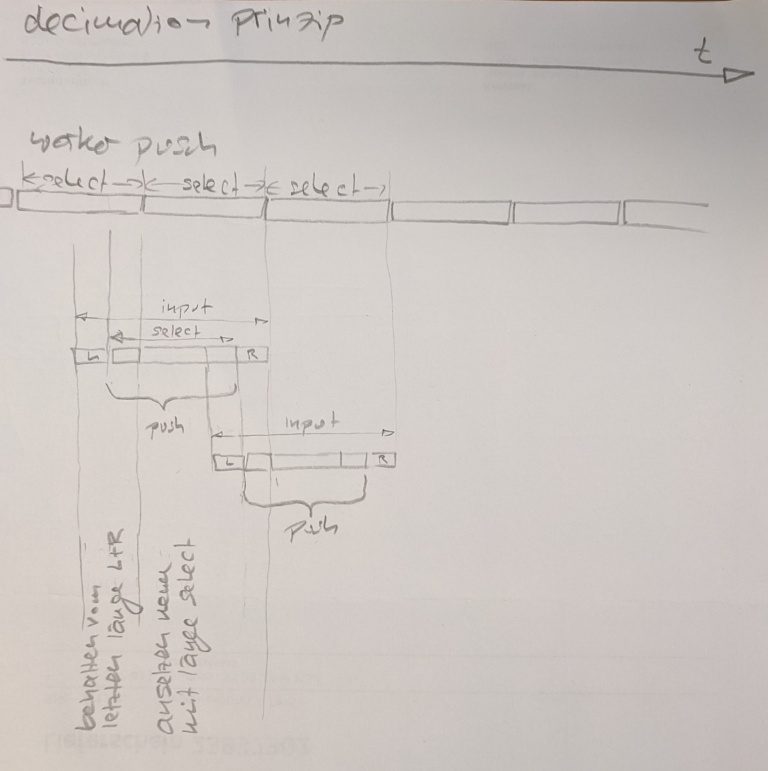 decimation prinzip
t
worker push
select select select
input
select
L R
push
input
L R
push
behalten vom
letzten länge L+R
ansetzen neue
mit länge select